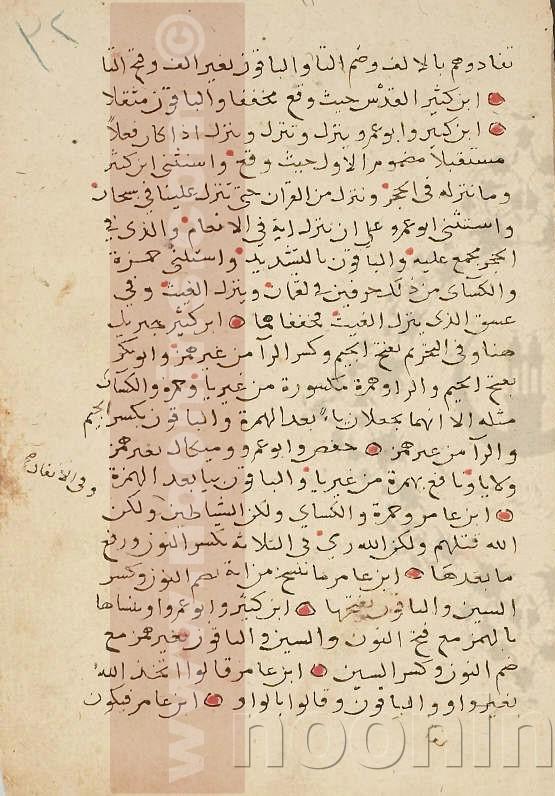 ٣٢
تفادوهم بالالف وضم التا والباقون بغير الف وفتح التا
ابن كثير القدس حيث وقع مخففا والباقون مثقلا
ابن كثير وابو عمرو ينزل وتنزل وننزل اذا كان فعلا
مستقبلا مضموم الاول حيث وقع واستثنى ابن كثير
وما ننزله في الحجر وننزل من القران حتى تنزل علينا في سبحان
واستثنى ابو عمرو على ان ينزل اية في الانعام والذي في
الحجر مجمع عليه والباقون بالتشديد واستثنى حمزة
والكساي من ذلك حرفين في لقمان وينزل الغيث وفي
عسق الذي ينزل الغيث فخففاهما ابن كثير جبريل
هنا وفي التحريم بفتح الجيم وكسر الرا من غير همز وابو بكر
بفتح الجيم والرا وهمزة مكسورة من غير يا وحمزة والكساي
مثله الا انهما يجعلان ياء بعد الهمزة والباقون بكسر الجيم
والرا من غير همز حفص وابو عمرو وميكال بغير همز
ولا يا ونافع بهمزة من غير يا والباقون بيا بعد الهمزة
وفي الانفال
ابن عامر وحمزة والكساي ولكن الشياطين ولكن
الله قتلهم ولكن الله رمى في الثلاثة بكسر النون ورفع
ما بعدها ابن عامر ما ننسخ من اية بضم النون وكسر
السين والباقون بفتحها ابن كثير وابو عمرو او ننساها
بالهمز مع فتح النون والسين والباقون بغير همز مع
ضم النون وكسر السين ابن عامر قالوا اتخذ الله
بغير واو والباقون وقالوا بالواو ابن عامر فيكون
noonin